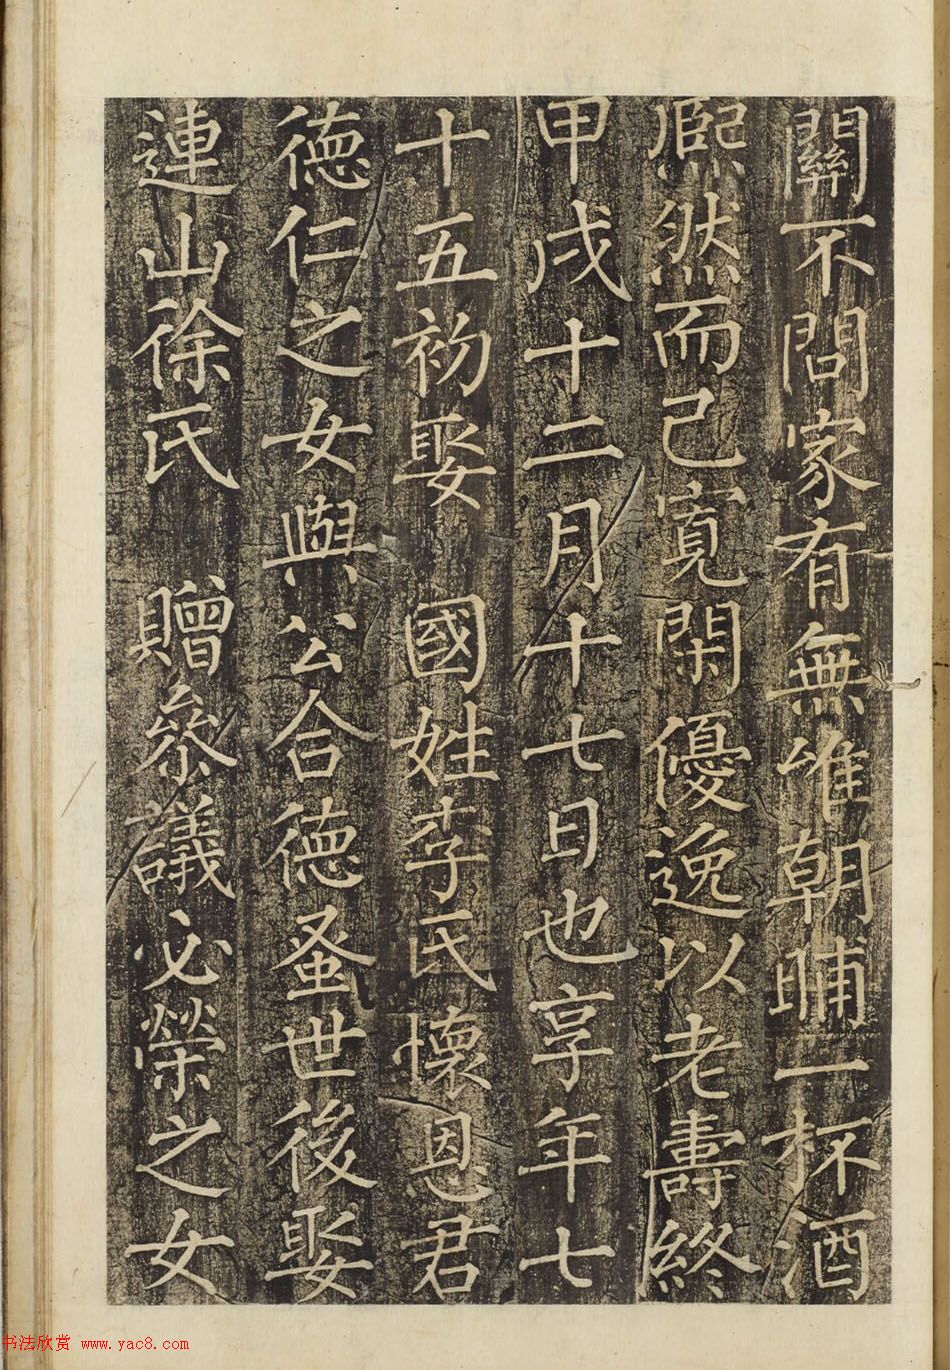 關不問家有無唯朝晡一杯酒
熈然而已寬閑優逸以老壽終
甲戌十二月十七日也享年七
十五初娶 國姓李氏懷恩君
德仁之女與公合德蚤世後娶
連山徐氏 贈叅議必榮之女
书法欣赏 www.yac8.com